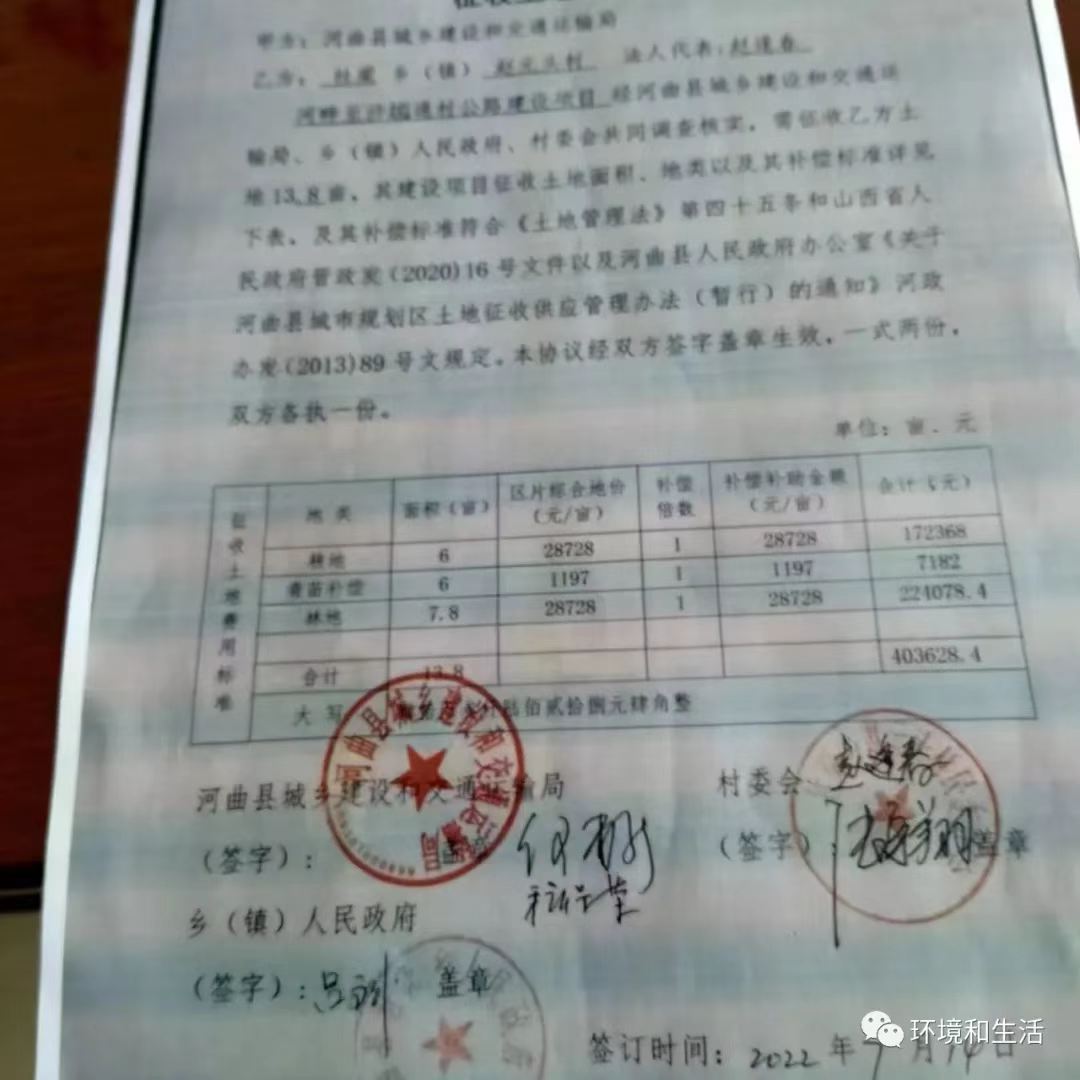 甲方：河曲县城乡建设和交通运输局
乙方： 乡（镇）赵元头村 法人代表：赵逢春
通村公路建设项目 经河曲县城乡建设和交通运
输局、乡（镇）人民政府、村委会共同调查核实，需征收乙方土
地13.8亩，其建设项目征收土地面积、地类以及其补偿标准详见
下表，及其补偿标准符合《土地管理法》第四十五条和山西省人
民政府晋政发(2020)16号文件以及河曲县人民政府办公室《关于
河曲县城市规划区土地征收供应管理办法（暂行）的通知》河政
办发(2013)89号文规定。本协议经双方签字盖章生效，一式两份，
双方各执一份。
单位：亩、元
征收土地费用标准
地类 面积（亩） 区片综合地价（元/亩） 补偿倍数 补偿补助金额（元/亩） 合计（元）
耕地 6 28728 1 28728 172368
青苗补偿 6 1197 1 1197 7182
林地 7.8 28728 1 28728 224078.4
合计 13.8 403628.4
大写 陆佰贰拾捌元肆角整
河曲县城乡建设和交通运输局 村委会 赵逢春
（签字）： 盖章 （签字）： 盖章
乡（镇）人民政府
（签字）： 盖章
签订时间：2022年7月14日
环境和生活